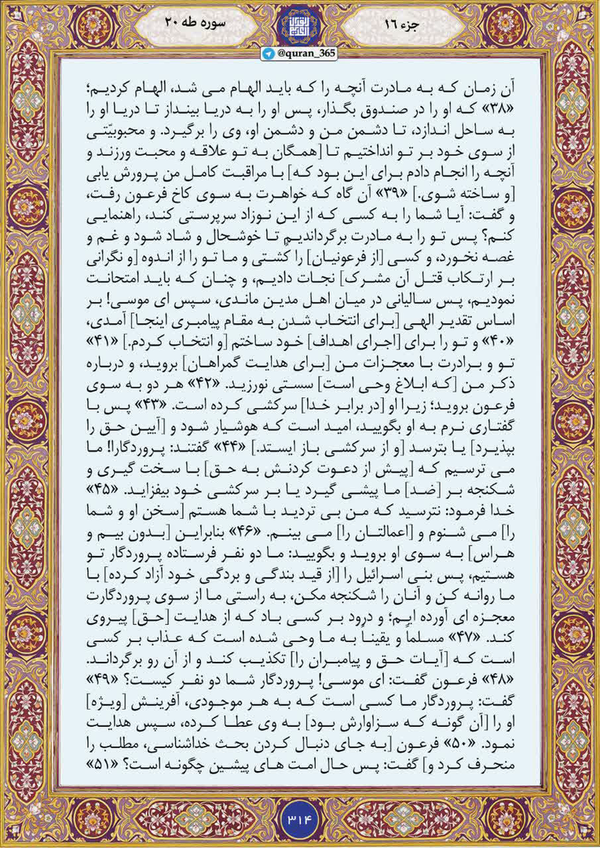 جزء ۱۶
سوره طه ۲۰
@quran_365
آن زمان که به مادرت آنچه را که باید الهام می شد، الهام کردیم؛
«۳۸» که او را در صندوق بگذار، پس او را به دریا بینداز تا دریا او را
به ساحل اندازد، تا دشمن من و دشمن او، وی را برگیرد. و محبوبیّتی
از سوی خود بر تو انداختیم تا [همگان به تو علاقه و محبت ورزند و
آنچه را انجام دادم برای این بود که] با مراقبت کامل من پرورش یابی
[و ساخته شوی.] «۳۹» آن گاه که خواهرت به سوی کاخ فرعون رفت،
و گفت: آیا شما را به کسی که از این نوزاد سرپرستی کند، راهنمایی
کنم؟ پس تو را به مادرت برگرداندیم تا خوشحال و شاد شود و غم و
غصه نخورد، و کسی [از فرعونیان] را کشتی و ما تو را از اندوه [و نگرانی
بر ارتکاب قتل آن مشرک] نجات دادیم، و چنان که باید امتحانت
نمودیم، پس سالیانی در میان اهل مدین ماندی، سپس ای موسی! بر
اساس تقدیر الهی [برای انتخاب شدن به مقام پیامبری اینجا] آمدی،
«۴۰» و تو را برای [اجرای اهداف] خود ساختم [و انتخاب کردم.] «۴۱»
تو و برادرت با معجزات من [برای هدایت گمراهان] بروید، و درباره
ذکر من [که ابلاغ وحی است] سستی نورزید. «۴۲» هر دو به سوی
فرعون بروید؛ زیرا او [در برابر خدا] سرکشی کرده است. «۴۳» پس با
گفتاری نرم به او بگویید، امید است که هوشیار شود و [آیین حق را
بپذیرد] یا بترسد [و از سرکشی باز ایستد.] «۴۴» گفتند: پروردگارا! ما
می ترسیم که [پیش از دعوت کردنش به حق] با سخت گیری و
شکنجه بر [ضد] ما پیشی گیرد یا بر سرکشی خود بیفزاید. «۴۵»
خدا فرمود: نترسید که من بی تردید با شما هستم [سخن او و شما
را] می شنوم و [اعمالتان را] می بینم. «۴۶» بنابراین [بدون بیم و
هراس] به سوی او بروید و بگویید: ما دو نفر فرستاده پروردگار تو
هستیم، پس بنی اسرائیل را [از قید بندگی و بردگی خود آزاد کرده] با
ما روانه کن و آنان را شکنجه مکن، به راستی ما از سوی پروردگارت
معجزه ای آورده ایم؛ و درود بر کسی باد که از هدایت [حق] پیروی
کند. «۴۷» مسلماً و یقینا به ما وحی شده است که عذاب بر کسی
است که [آیات حق و پیامبران را] تکذیب کند و از آن رو برگرداند.
«۴۸» فرعون گفت: ای موسی! پروردگار شما دو نفر کیست؟ «۴۹»
گفت: پروردگار ما کسی است که به هر موجودی، آفرینش [ویژه]
او را [آن گونه که سزاوارش بود] به وی عطا کرده، سپس هدایت
نمود. «۵۰» فرعون [به جای دنبال کردن بحث خداشناسی، مطلب را
منحرف کرد و] گفت: پس حال امت های پیشین چگونه است؟ «۵۱»
۳۱۴